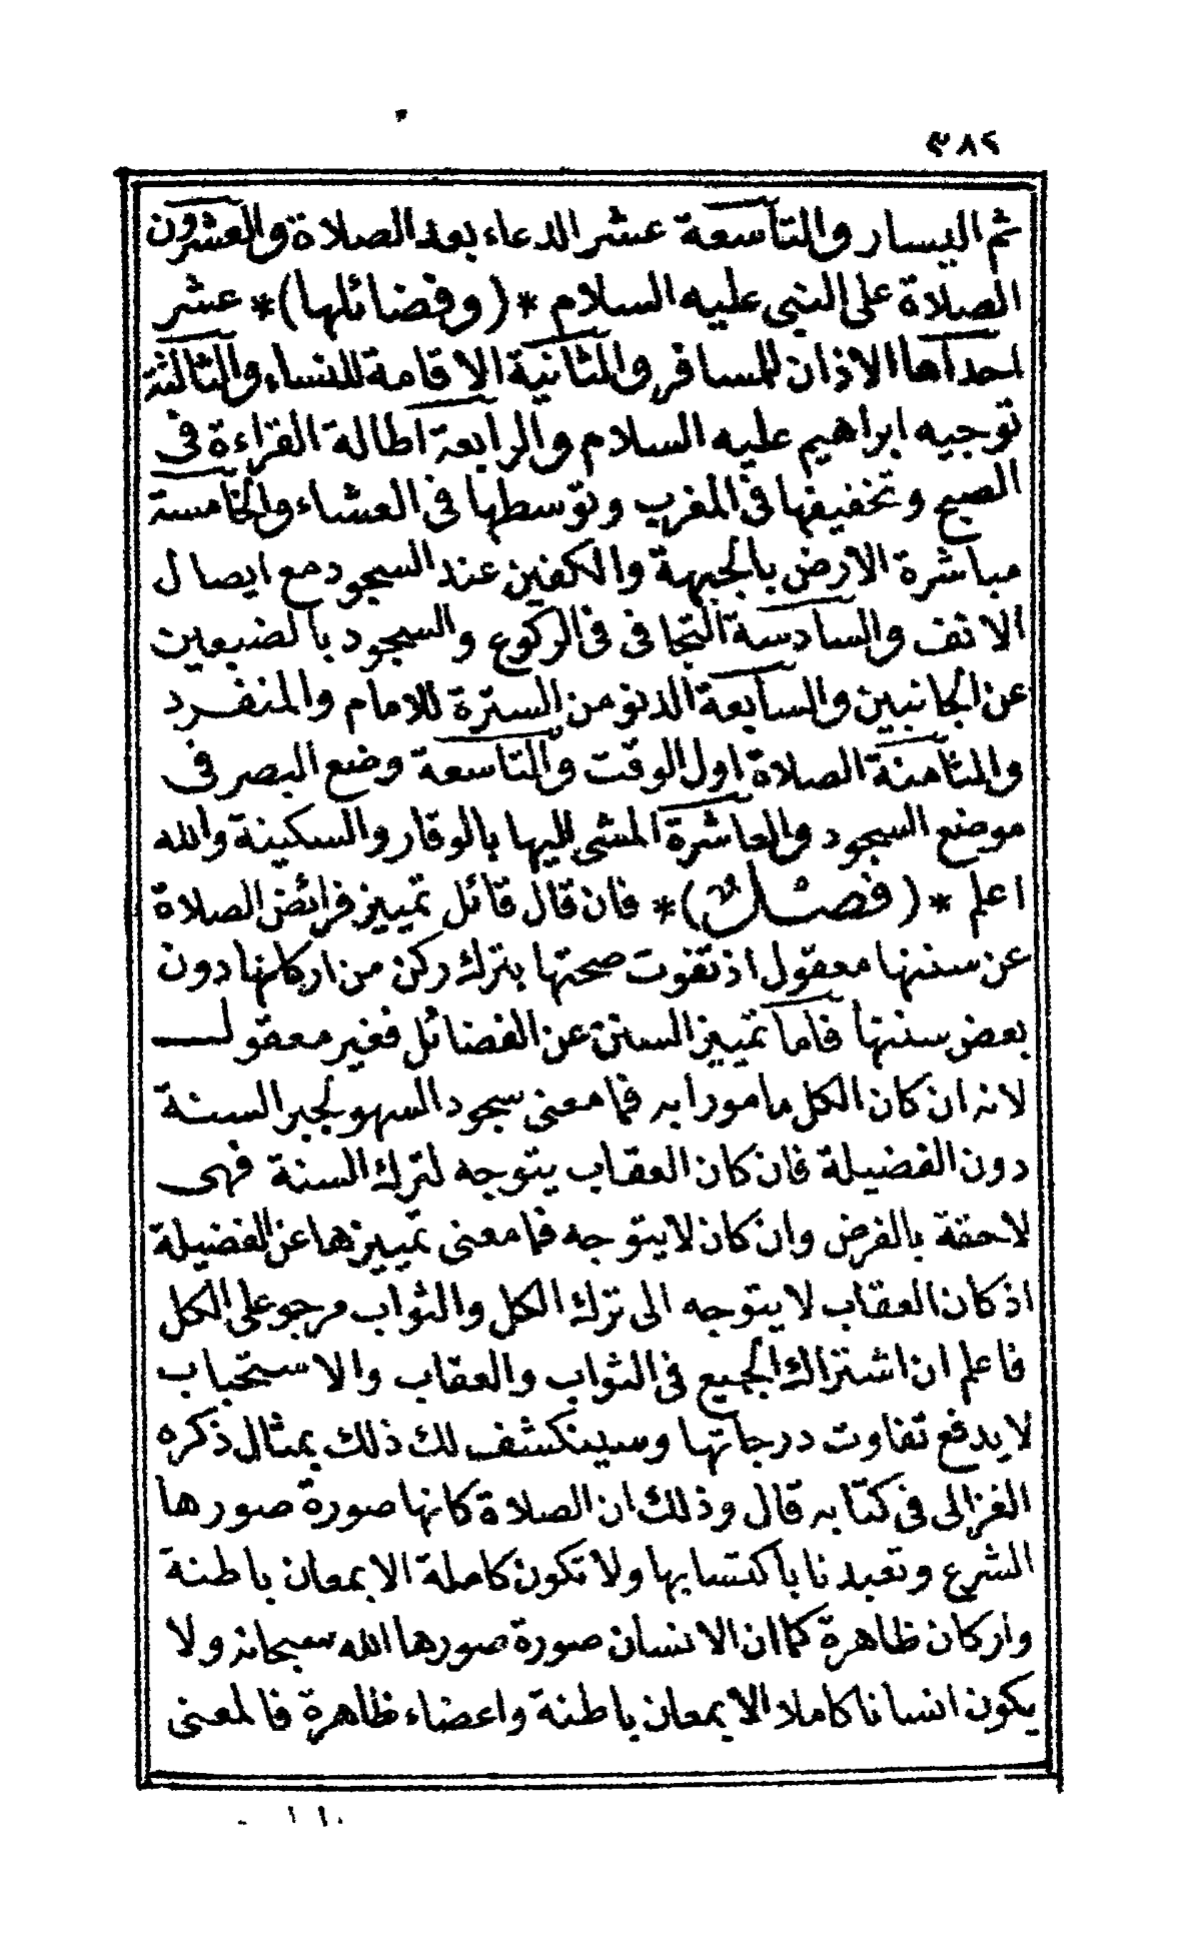 ٣٨٢
ثم اليسار والتاسعة عشر الدعاء بعد الصلاة والعشرون
الصلاة على النبى عليه السلام *(وفضائلها)* عشر
احداها الاذان للمسافر والثانية الاقامة للنساء والثالثة
توجيه ابراهيم عليه السلام والرابعة اطالة القراءة فى
الصبح وتخفيفها فى المغرب وتوسطها فى العشاء والخامسة
مباشرة الارض بالجبهة والكفين عند السجود مع ايصال
الانف والسادسة التجافى فى الركوع والسجود بالضبعين
عن الجانبين والسابعة الدنو من السترة للامام والمنفرد
والثامنة الصلاة اول الوقت والتاسعة وضع البصر فى
موضع السجود والعاشرة المشى اليها بالوقار والسكينة والله
اعلم *(فصل)* فان قال قائل تمييز فرائض الصلاة
عن سننها معقول اذ تفوت صحتها بترك ركن من اركانها دون
بعض سننها فاما تمييز السنن عن الفضائل فغير معقول
لانه ان كان الكل مامورا به فما معنى سجود السهو لجبر السنة
دون الفضيلة فان كان العقاب يتوجه لترك السنة فهى
لاحقة بالفرض وان كان لا يتوجه فما معنى تمييزها عن الفضيلة
اذ كان العقاب لا يتوجه الى ترك الكل والثواب مرجو على الكل
فاعلم ان اشتراك الجميع فى الثواب والعقاب والاستحباب
لا يدفع تفاوت درجاتها وسينكشف لك ذلك بمثال ذكره
الغزالى فى كتابه قال وذلك ان الصلاة كانها صورة صورها
الشرع وتعبدنا باكتسابها ولا تكون كاملة الا بمعان باطنة
واركان ظاهرة كما ان الانسان صورة صورها الله سبحانه ولا
يكون انسانا كاملا الا بمعان باطنة واعضاء ظاهرة فالمعنى